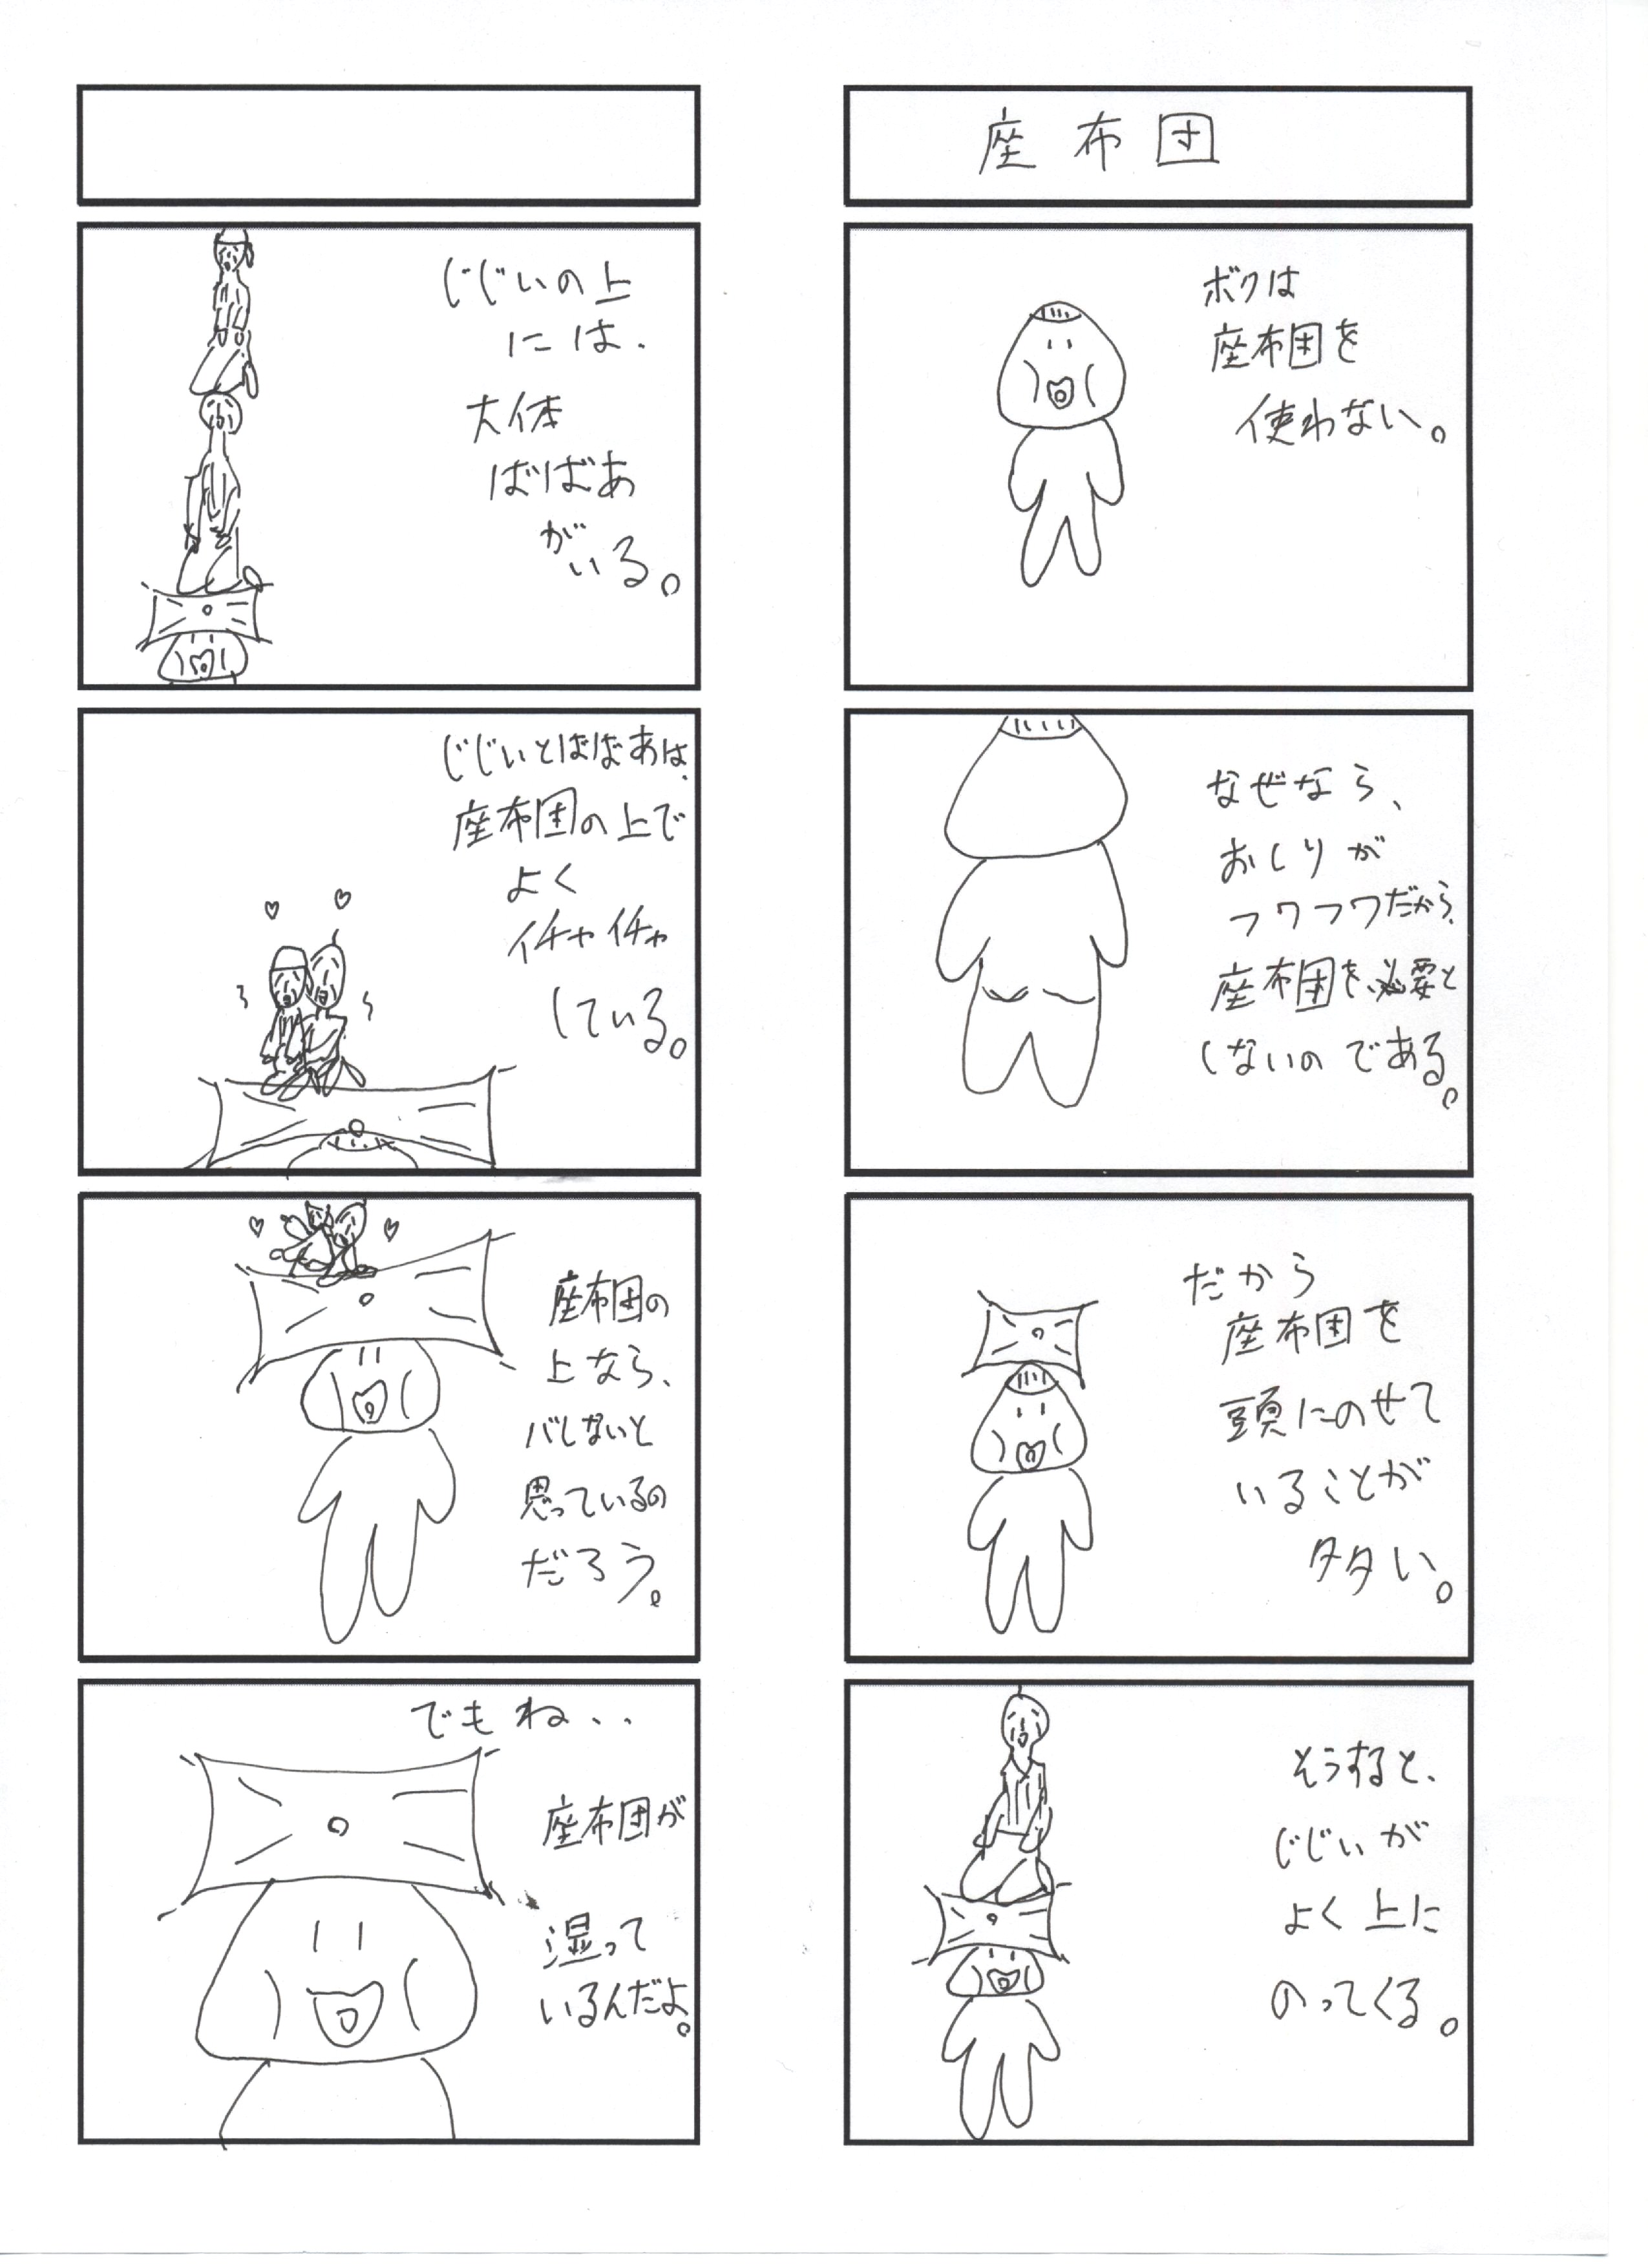 座布団
ボクは
座布団を
使わない。
なぜなら、
おしりが
フワフワだから、
座布団を必要と
しないのである。
だから
座布団を
頭にのせて
いることが
多い。
そうすると、
じじいが
よく上に
のってくる。
じじいの上
には、
大体
ばばあ
が
いる。
じじいとばばあは、
座布団の上で
よく
イチャイチャ
している。
座布団の
上なら、
バレないと
思っているの
だろう。
でもね、、
座布団が
湿って
いるんだよ。